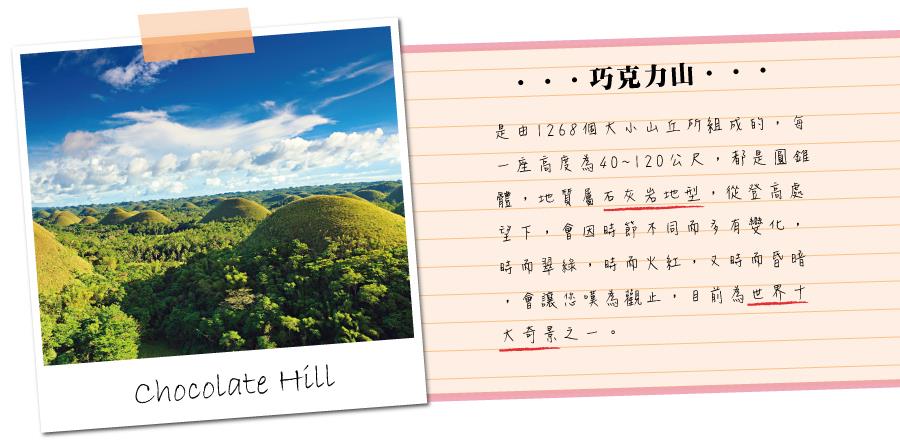 Chocolate Hill
···巧克力山···
是由1268個大小山丘所組成的，每
一座高度為40~120公尺，都是圓錐
體，地質屬石灰岩地型，從登高處
望下，會因時節不同而多有變化，
時而翠綠，時而火紅，又時而昏暗
，會讓您嘆為觀止，目前為世界十
大奇景之一。